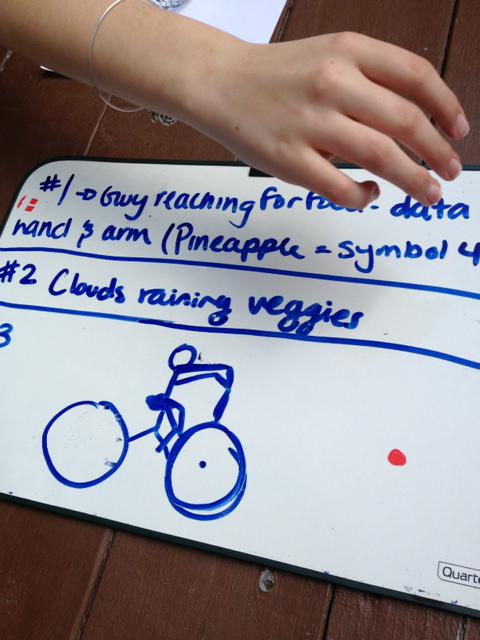 #1 → Guy reaching for data
hand & arm (Pineapple = symbol 4
#2 Clouds raining veggies
3
Quarte